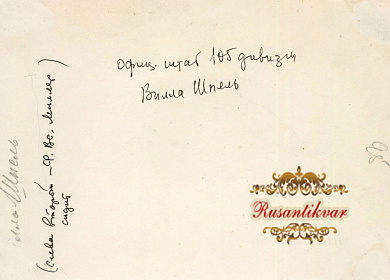 Офиц. штаб 105 дивизии
Вилла Шпель
(слева второй — Ф. Вс.
сидит
Шпель
Rusantikvar